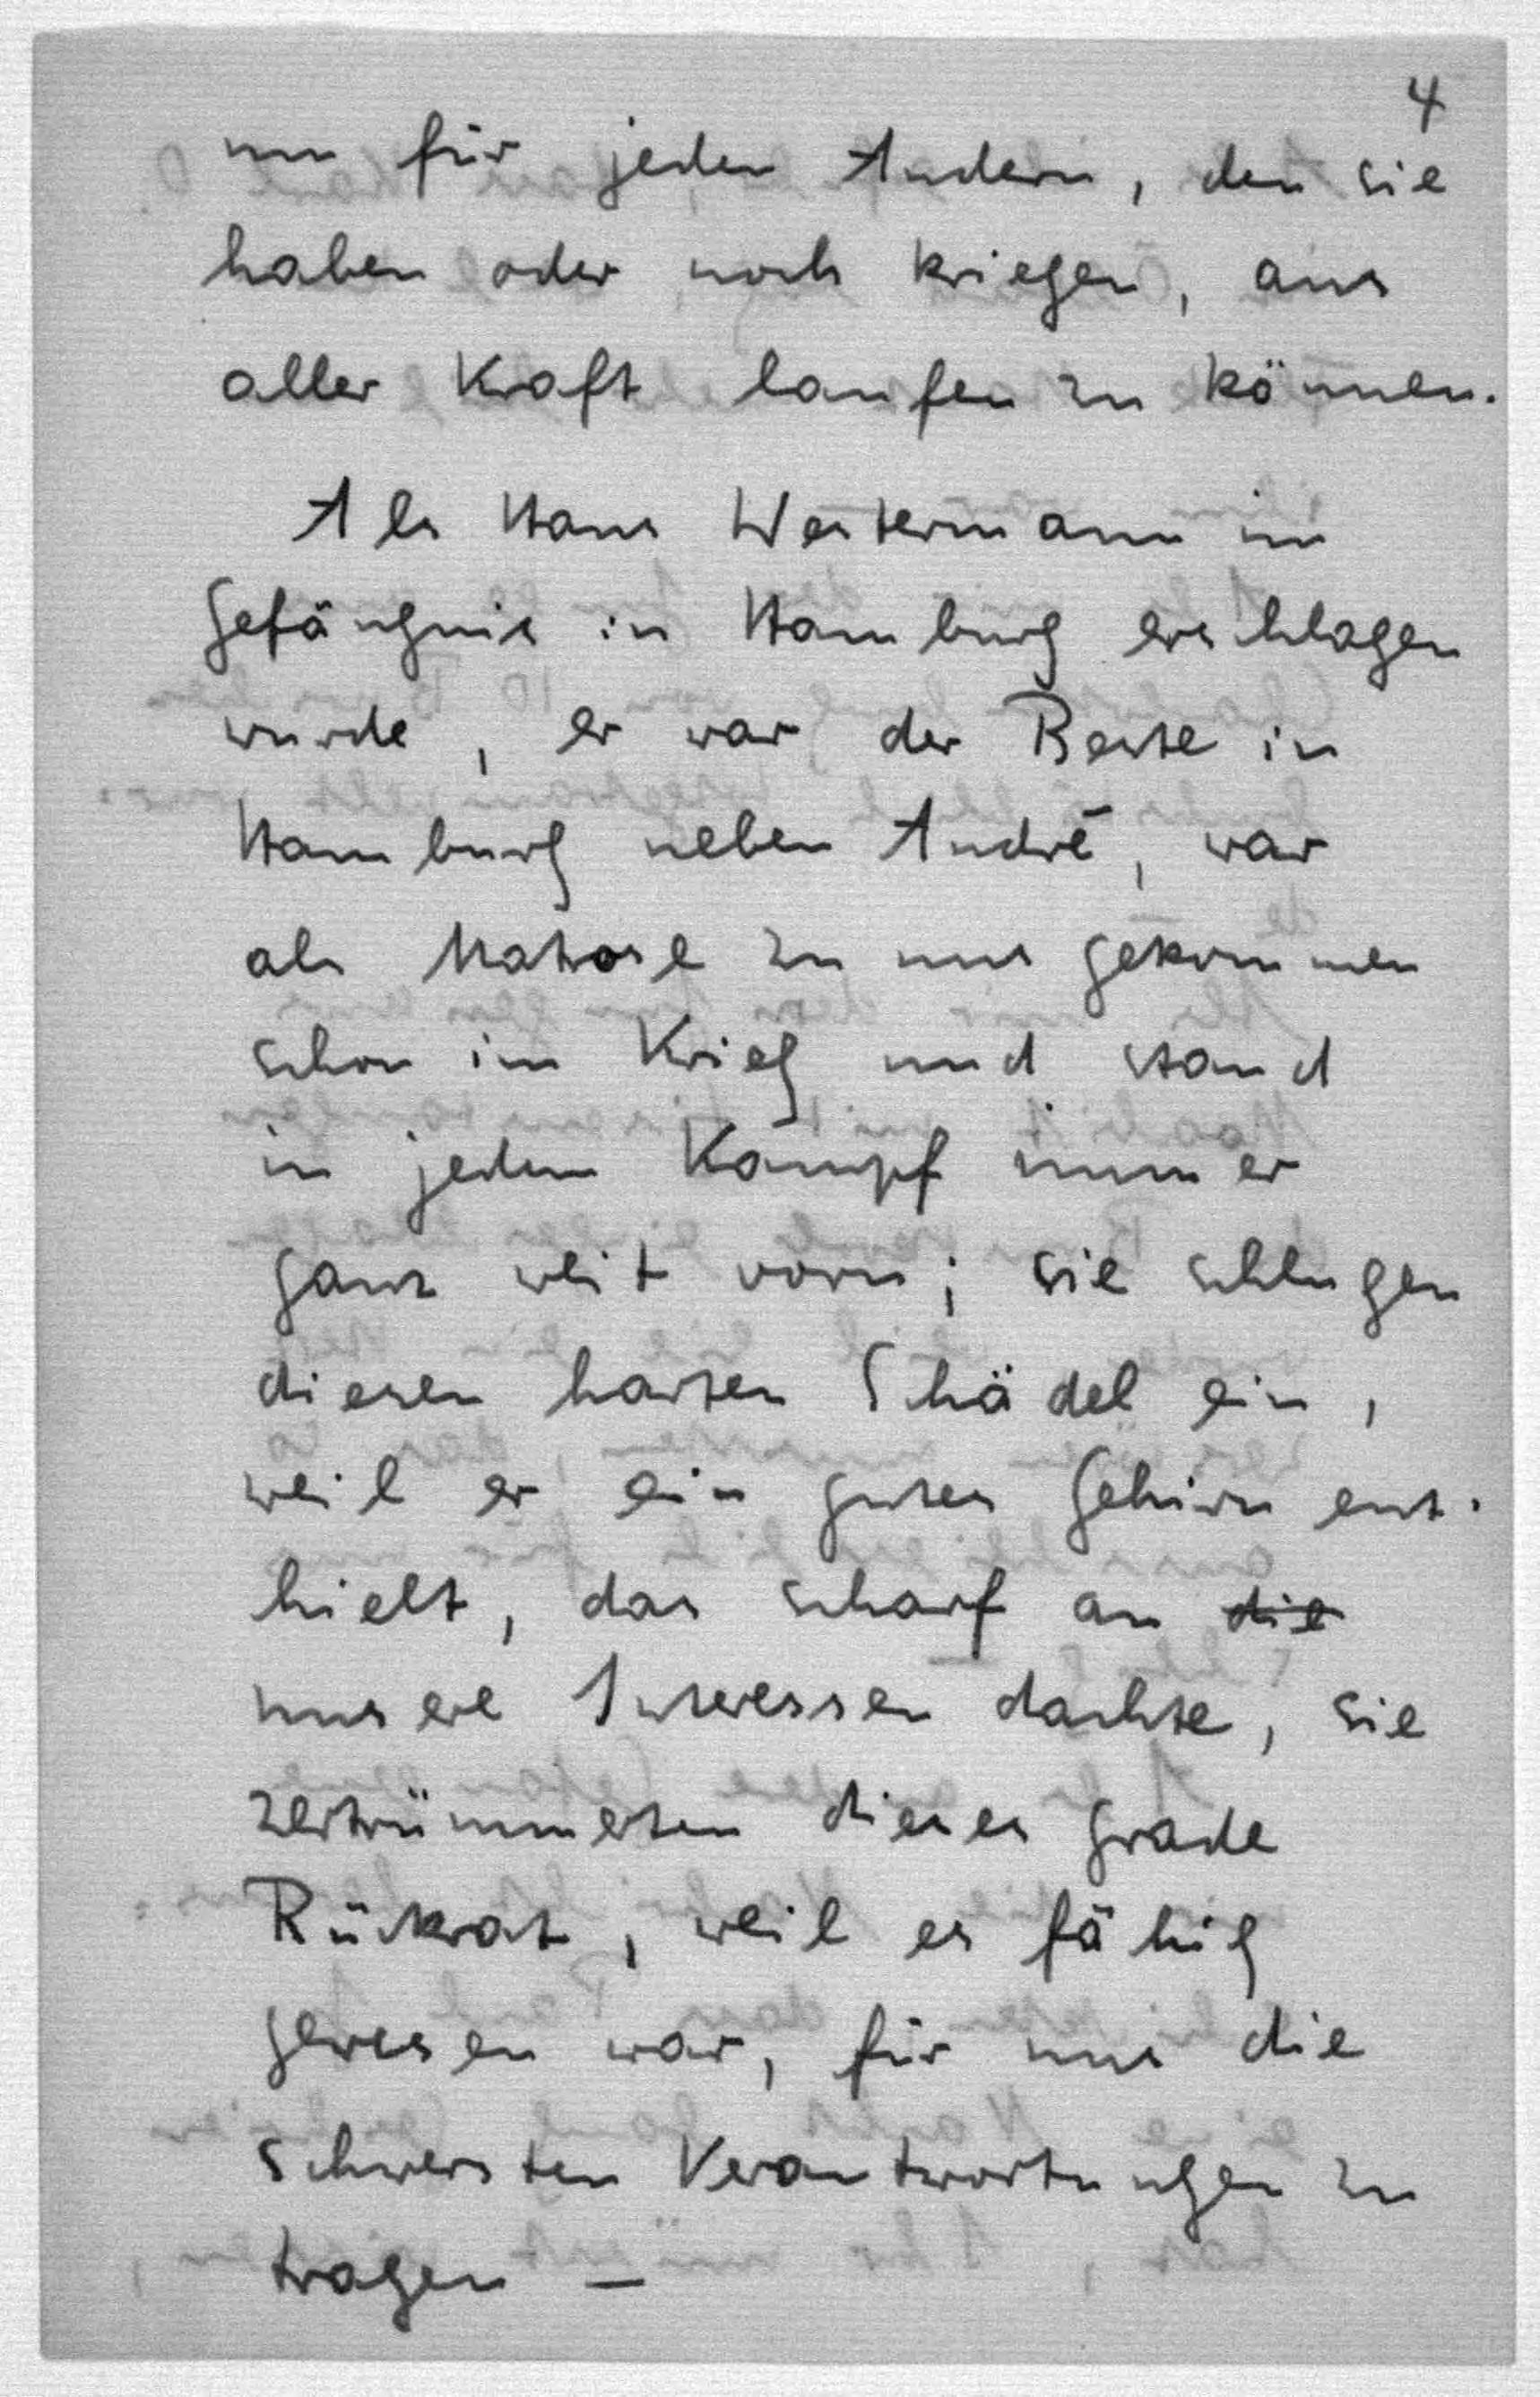 4
um für jeden Andern, den sie
haben oder noch kriegen, aus
aller Kraft laufen zu können.
Als Hans Westermann im
Gefängnis in Hamburg erschlagen
wurde, er war der Beste in
Hamburg neben André, war
als Matrose zu uns gekommen
schon im Krieg und stand
in jedem Kampf immer
ganz weit vorn; sie schlugen
diesen harten Schädel ein,
weil er ein gutes Gehirn ent-
hielt, das scharf an die
unsere Interessen dachte, sie
zertrümmerten dieses grade
Rückrat, weil es fähig
gewesen war, für uns die
schwersten Verantwortungen zu
tragen —